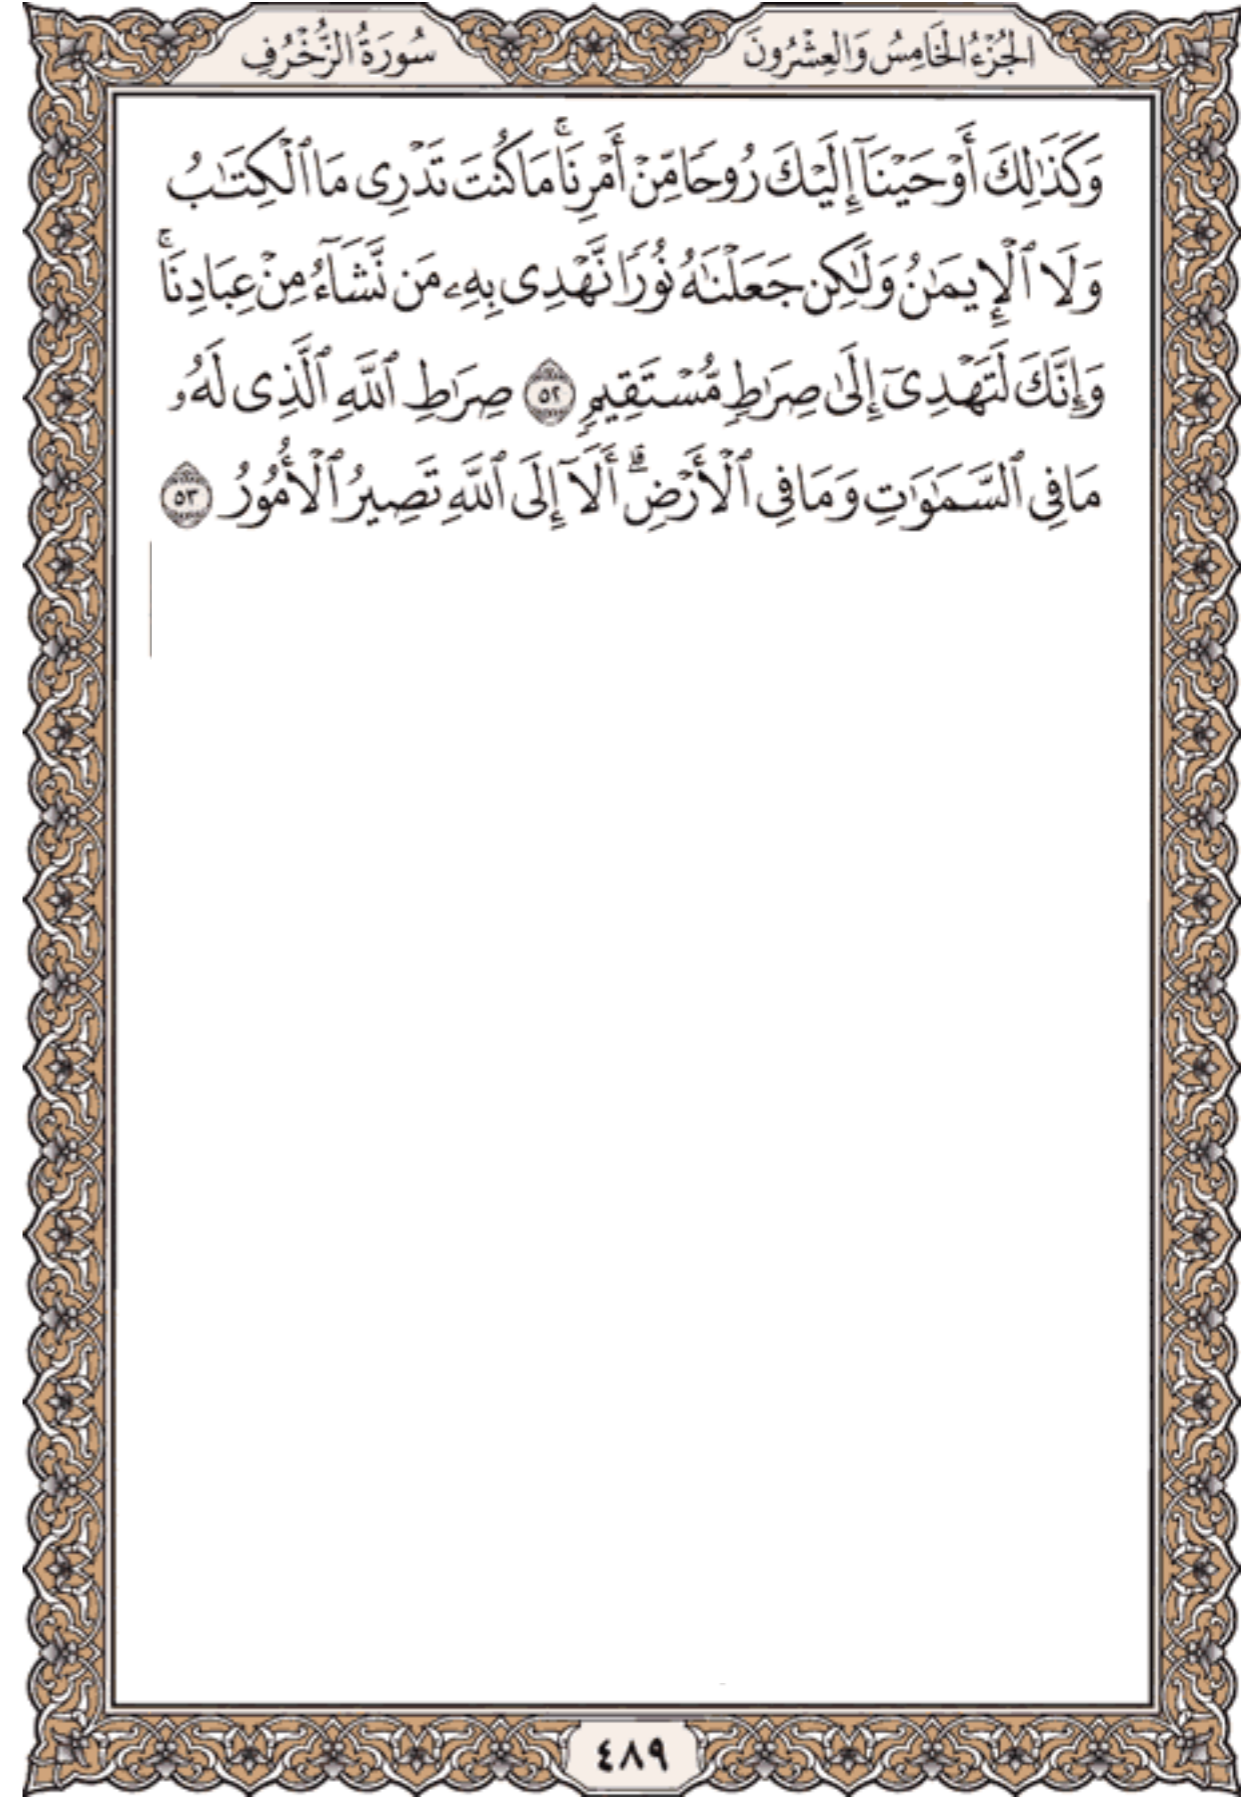 الجُزْءُ الخَامِسُ وَالعِشْرُونَ
سُورَةُ الزُّخْرُفِ
وَكَذَٰلِكَ أَوْحَيْنَآ إِلَيْكَ رُوحًا مِّنْ أَمْرِنَاۚ مَا كُنتَ تَدْرِى مَا ٱلْكِتَٰبُ
وَلَا ٱلْإِيمَٰنُ وَلَٰكِن جَعَلْنَٰهُ نُورًا نَّهْدِى بِهِۦ مَن نَّشَآءُ مِنْ عِبَادِنَاۚ
وَإِنَّكَ لَتَهْدِىٓ إِلَىٰ صِرَٰطٍ مُّسْتَقِيمٍ ٥٢ صِرَٰطِ ٱللَّهِ ٱلَّذِى لَهُۥ
مَا فِى ٱلسَّمَٰوَٰتِ وَمَا فِى ٱلْأَرْضِۗ أَلَآ إِلَى ٱللَّهِ تَصِيرُ ٱلْأُمُورُ ٥٣
٤٨٩